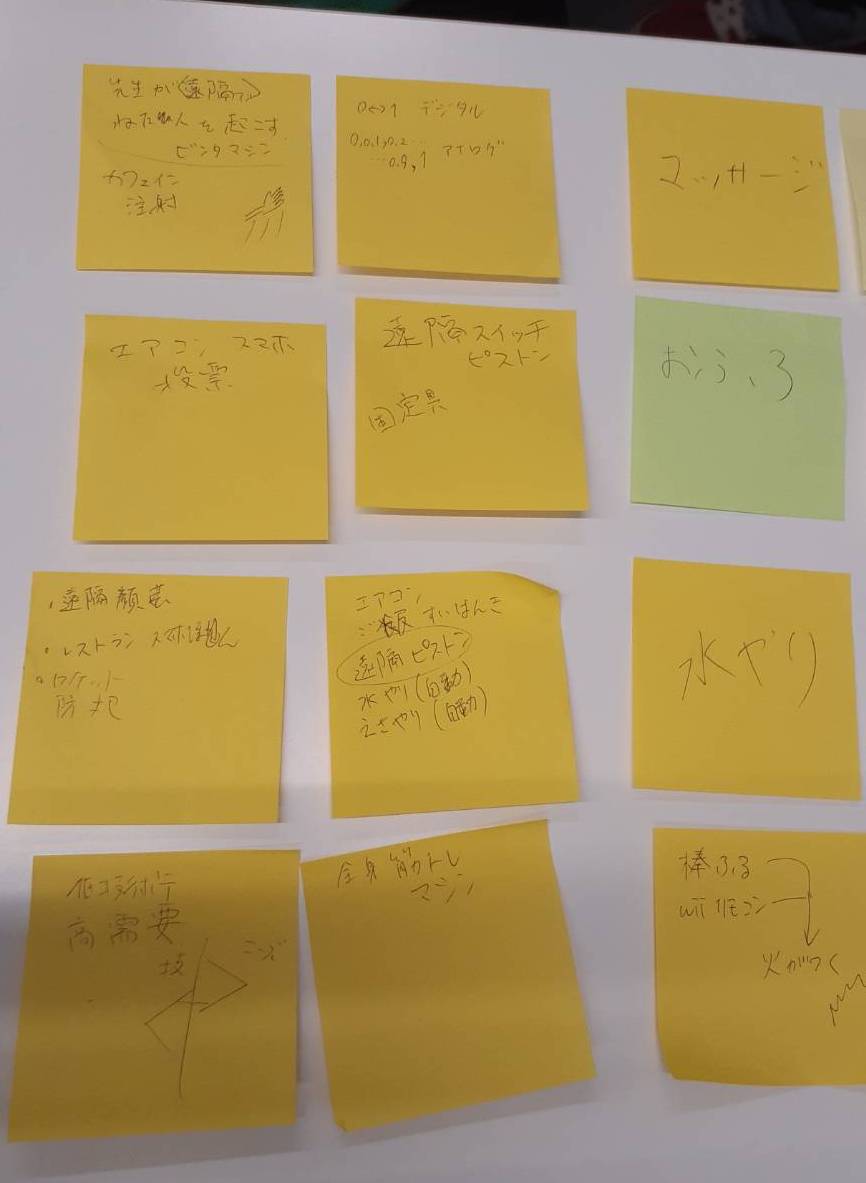 先生が(遠隔で)
ねた人を起こす
ビンタマシン
カフェイン
注射
0↔1 デジタル
0,0.1,0.2…
…0.9,1 アナログ
マッサージ
エアコン スマホ
投票
遠隔スイッチ
ピストン
固定具
おふろ
・遠隔
・レストラン スマホ
・ロケット
エアコン
ご飯 すいはんき
遠隔ピストン
水やり(自動)
えさやり(自動)
水やり
高需要
技
全身筋トレ
マシン
棒ふる
wiiリモコン
火がつく